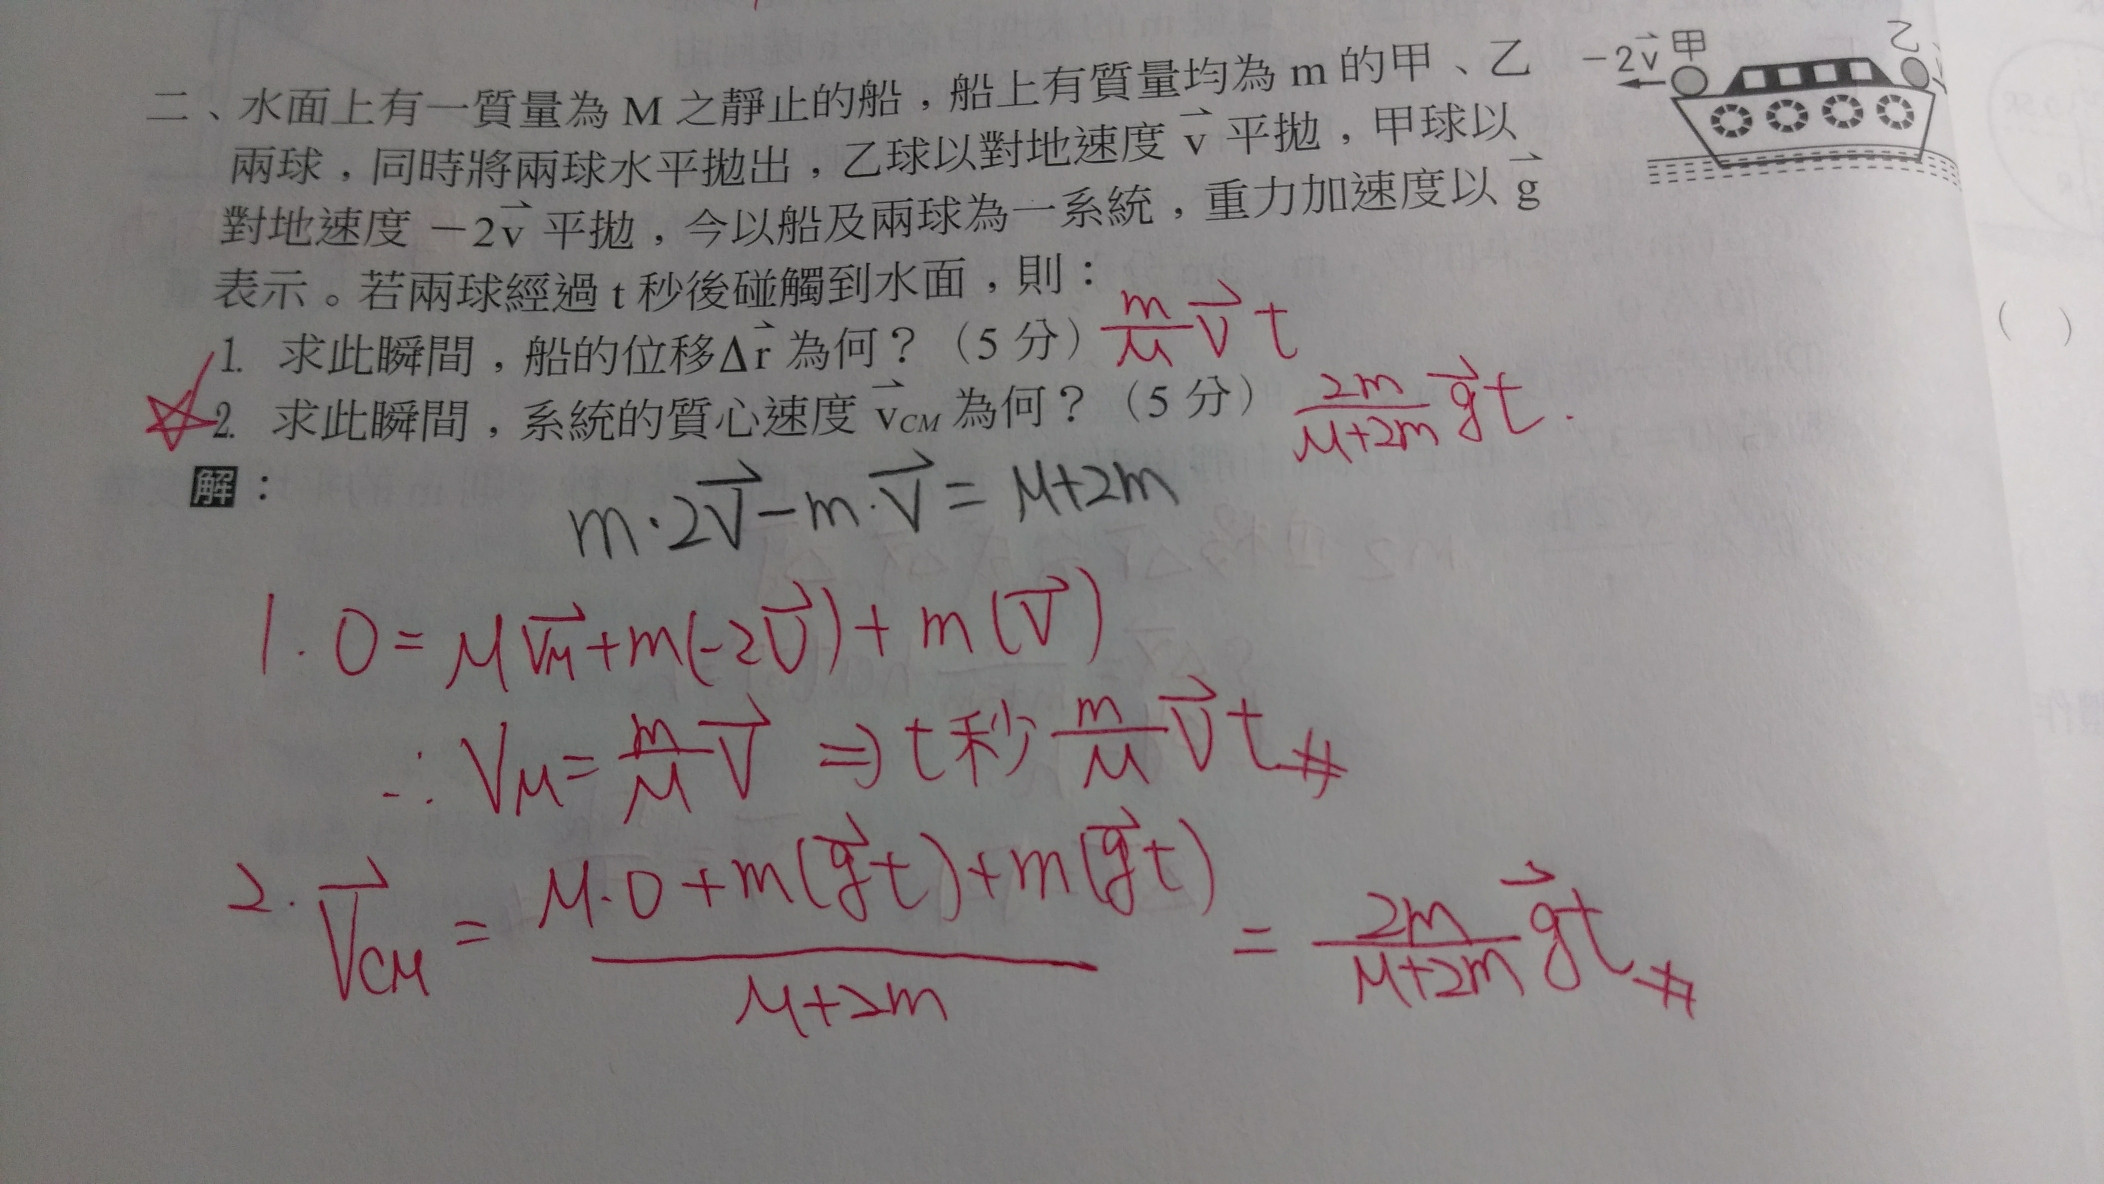 二、水面上有一質量為 M 之靜止的船，船上有質量均為 m 的甲、乙
兩球，同時將兩球水平拋出，乙球以對地速度 v⃗ 平拋，甲球以
對地速度 －2v⃗ 平拋，今以船及兩球為一系統，重力加速度以 g⃗
表示。若兩球經過 t 秒後碰觸到水面，則：
－2v⃗ 甲 乙
1. 求此瞬間，船的位移Δr⃗ 為何？（5 分） m/M V⃗ t
☆ 2. 求此瞬間，系統的質心速度 v⃗CM 為何？（5 分） 2m/M+2m g⃗t.
解：
m·2V⃗－m·V⃗ = M+2m
1. 0 = M V⃗M + m(-2V⃗) + m(V⃗)
∴ VM = m/M V⃗ ⇒ t秒 m/M V⃗ t #
2. V⃗CM = M·0 + m(g⃗t) + m(g⃗t) / M+2m = 2m/M+2m g⃗t #
( )